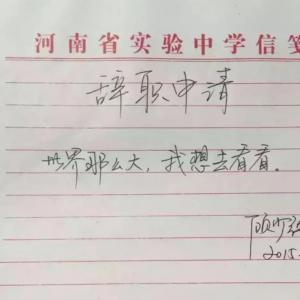 河南省实验中学信笺
辞职申请
世界那么大，我想去看看。
顾少
2015.